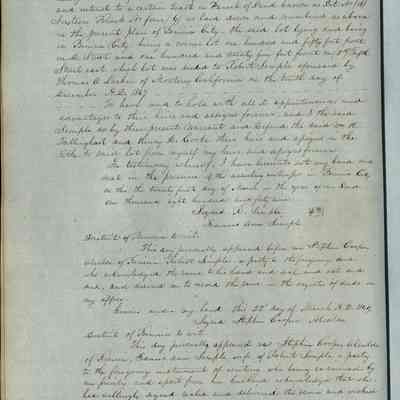 and interest to a certain tract or Parcel of Land known as Lot No (4)
Block No four (4) as laid down and numbered as above
in the present plan of Benicia City. the said lot lying and being
in Benicia City being a corner lot one hundred and fifty feet front
on D Street and one hundred and ninety five feet front on First
Street east which lot was deeded to Robert Semple aforesaid by
Thomas O. Larkin of Monterey California on the tenth day of
December A.D. 1847
To have and to hold with all it appurtenances and
advantages to their heirs and assigns forever and I the said
Semple do by these presents Warrant and Defend the said
Folkinghast and Henry their heirs and assigns in the
title to said lot from myself my heirs and assigns forever
In testimony whereof I have hereunto set my hand and
seal in the presence of the assenting witnesses in Benicia City
on this the twenty first day of March in the year of our Lord
one thousand eight hundred and forty nine
Signed R. Semple
Frances Ann Semple
District of Benicia to wit.
This day personally appeared before me Stephen Cooper
Alcalde of Benicia Robert Semple a party to the foregoing and
who acknowledged the same to be his hand and seal and act and
deed, and desired me to record the same in the register of deeds in
my office.
Given under my hand this 22nd day of March A.D. 1849
Signed Stephen Cooper Alcalde
District of Benicia to wit
This day personally appeared Stephen Cooper Alcalde
of Benicia, Frances Ann Semple wife of Robert Semple a party
to the foregoing instrument of writing who being examined by
me privily and apart from her husband acknowledges that she
has willingly signed sealed and delivered the same and wished